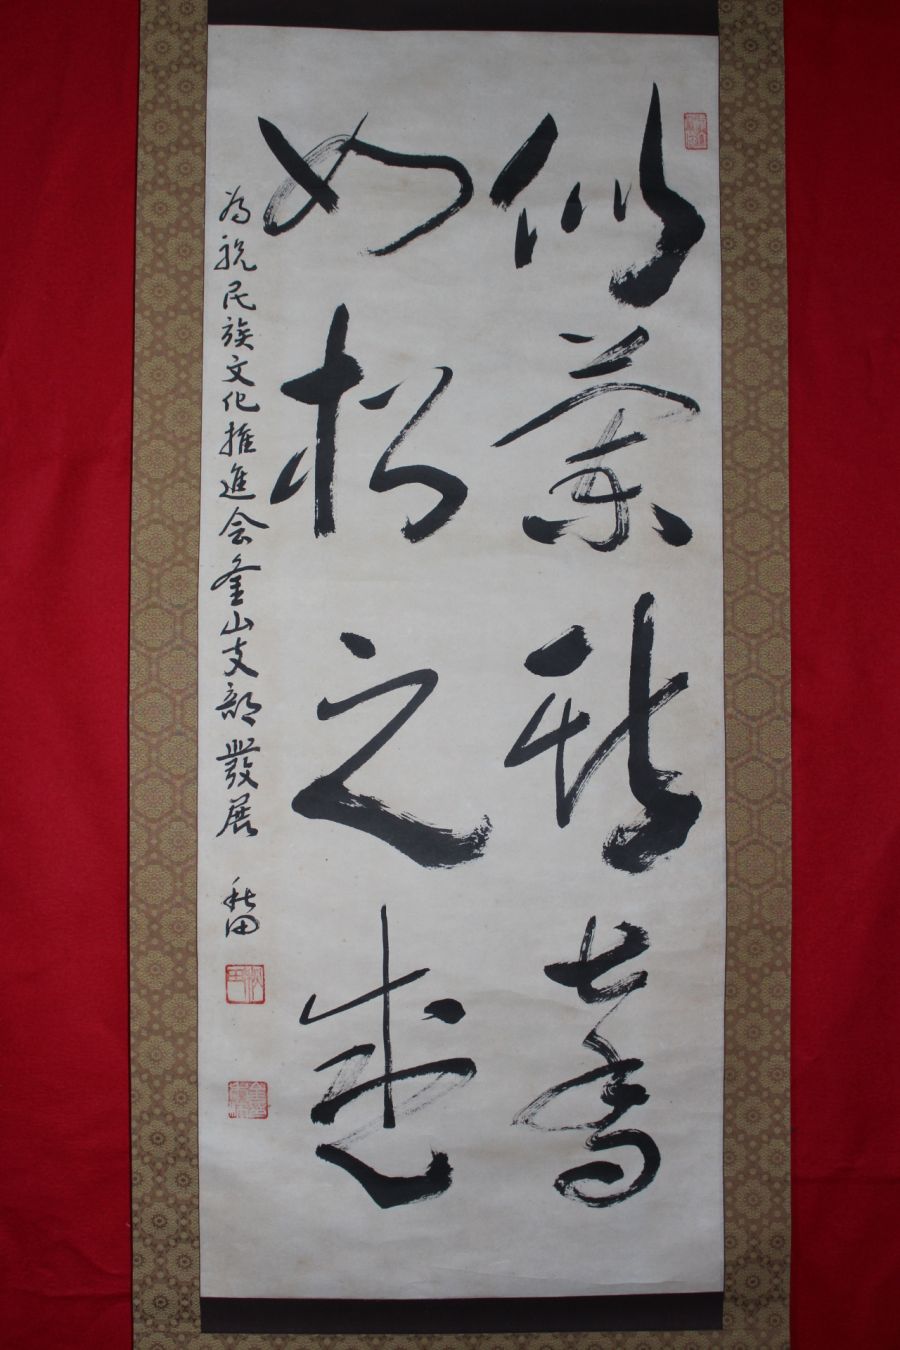 似蘭斯馨
如松之盛
為祝民族文化推進会釜山支部發展 秋田